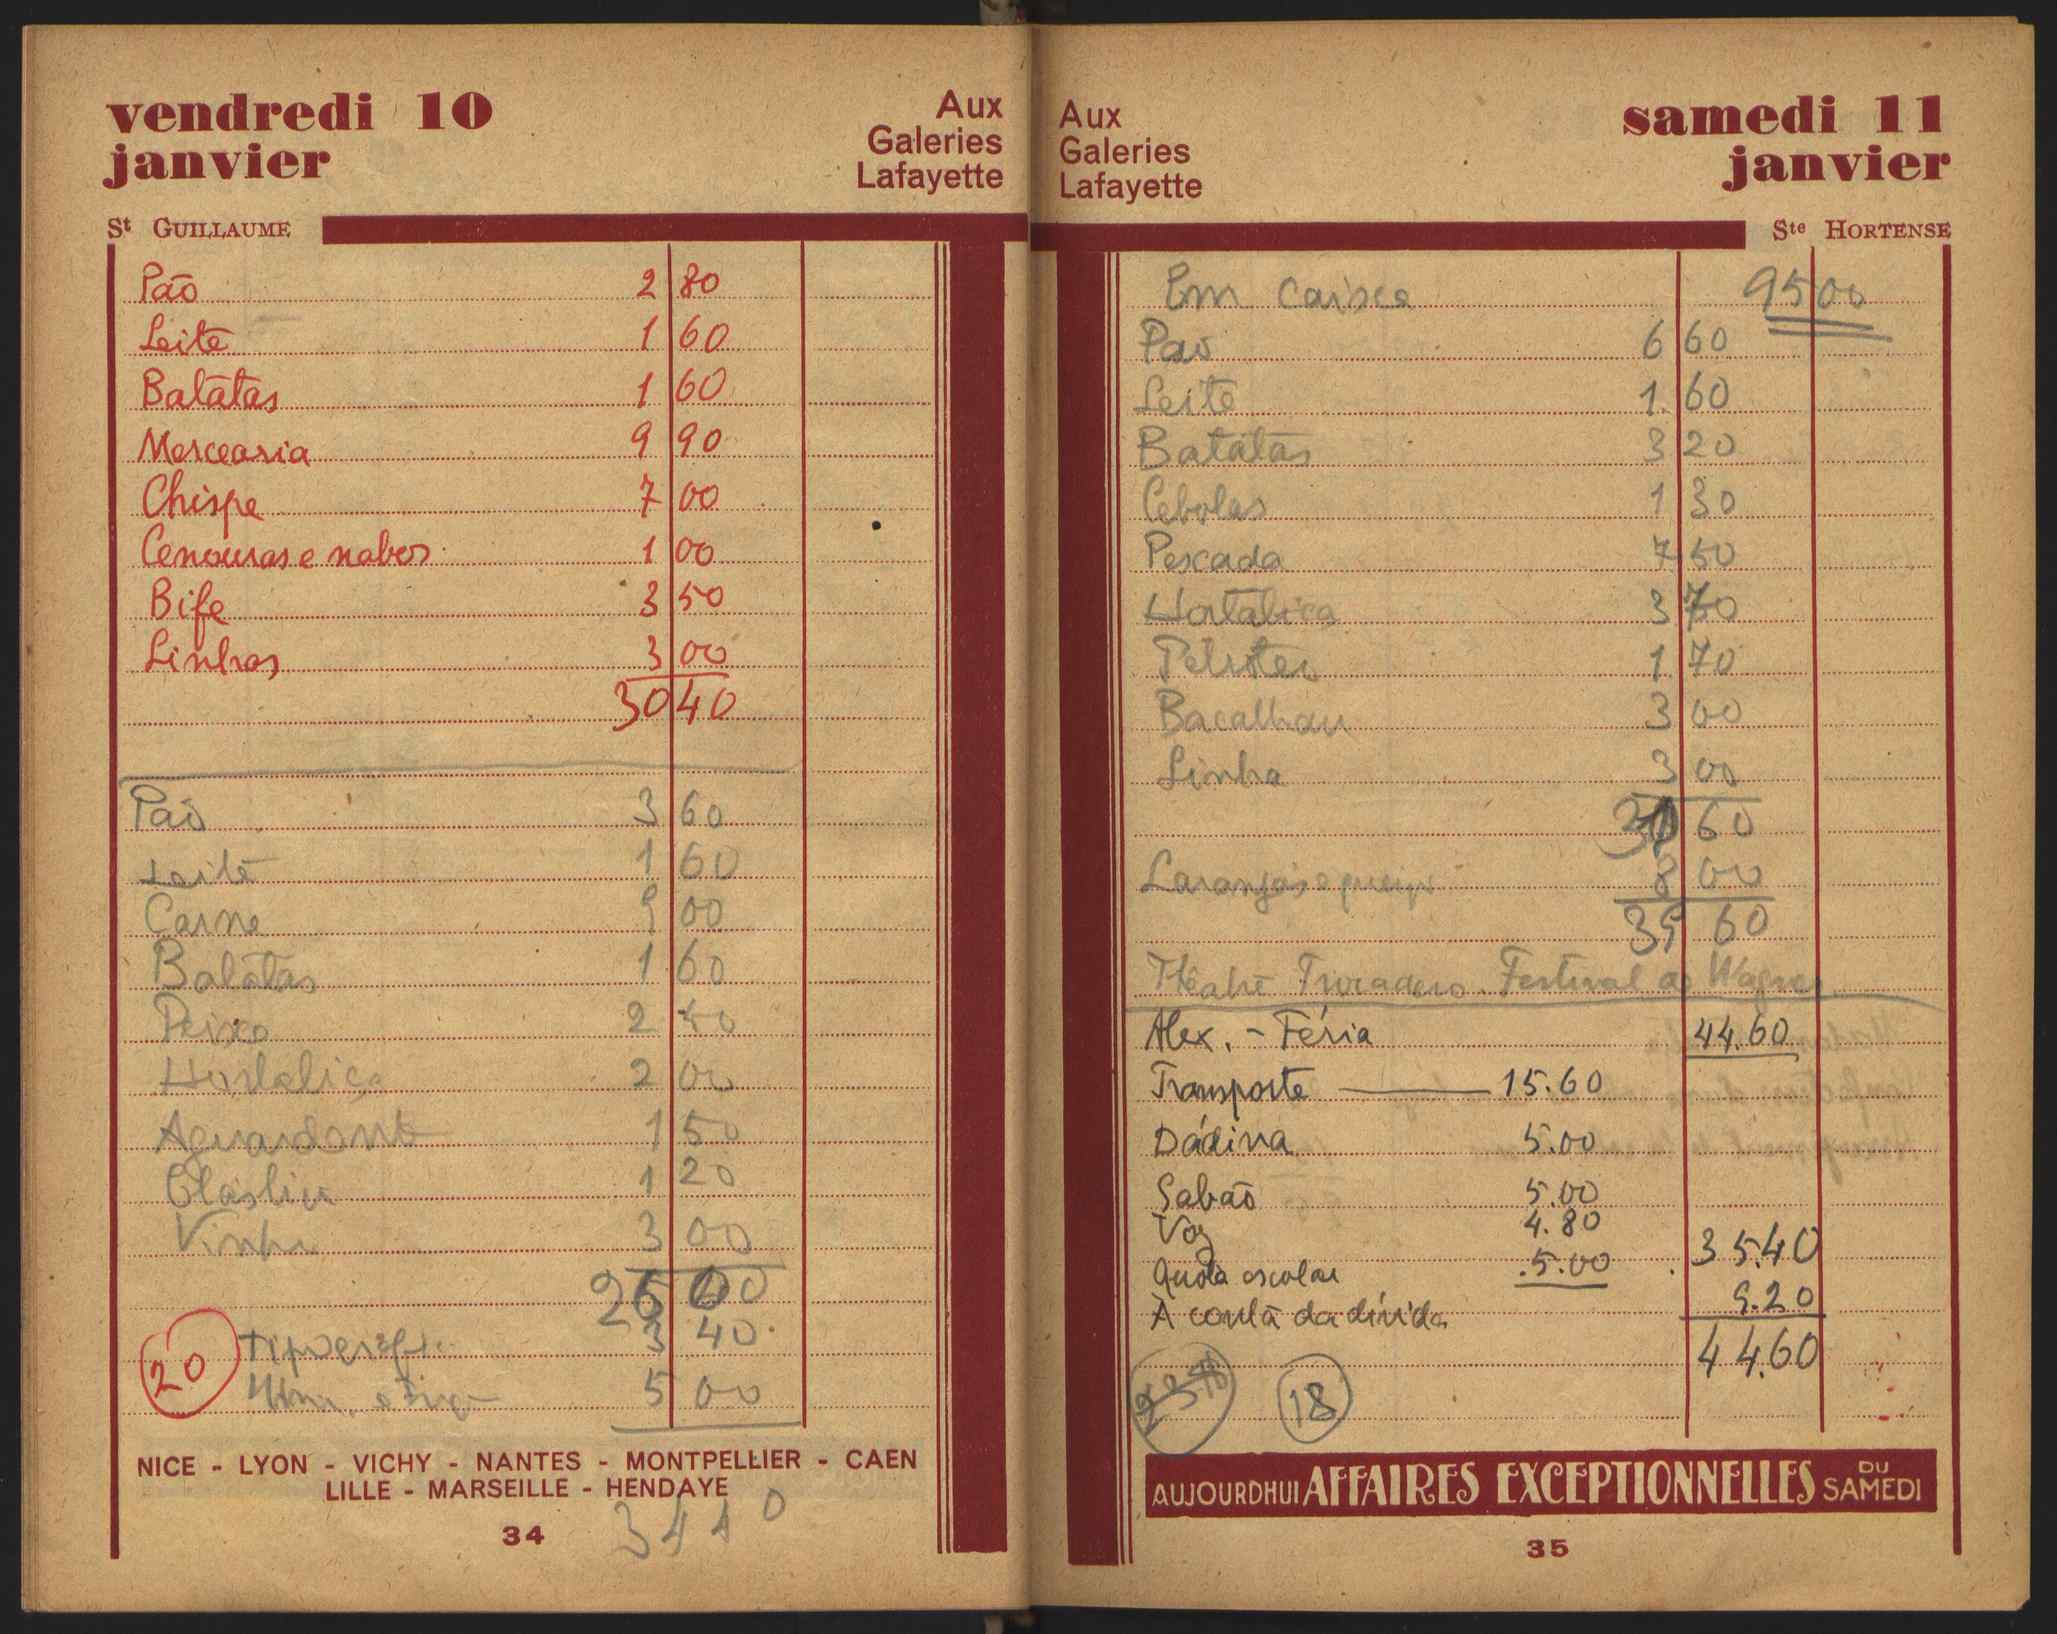 vendredi 10
janvier
Aux
Galeries
Lafayette
St GUILLAUME
Pão 2 80
Leite 1 60
Batatas 1 60
Mercearia 9 90
Chispe 7 00
Cenouras e nabos 1 00
Bife 3 50
Linhas 3 00
30 40
Pão 3 60
Leite 1 60
Carne 9 00
Batatas 1 60
Peixe 2 40
Hortaliça 2 00
Aguardente 1 50
1 20
Vinho 3 00
3 40
20
5 00
NICE - LYON - VICHY - NANTES - MONTPELLIER - CAEN
LILLE - MARSEILLE - HENDAYE
34
Aux
Galeries
Lafayette
samedi 11
janvier
Ste HORTENSE
Em caixa 9500
Pão 6 60
Leite 1. 60
Batatas 3 20
Cebolas 1 30
Pescada 7 50
Hortaliça 3 70
1 70
Bacalhau 3 00
Linha 3 00
60
Laranjas e 8 00
39 60
Festival de Wagner
Alex. - Féria 44.60
Transporte 15.60
Dádiva 5.00
Sabão 5.00
Voz 4.80
Quota escolar 5.00 35.40
À conta da dívida 9.20
44.60
18
AUJOURDHUI AFFAIRES EXCEPTIONNELLES DU SAMEDI
35